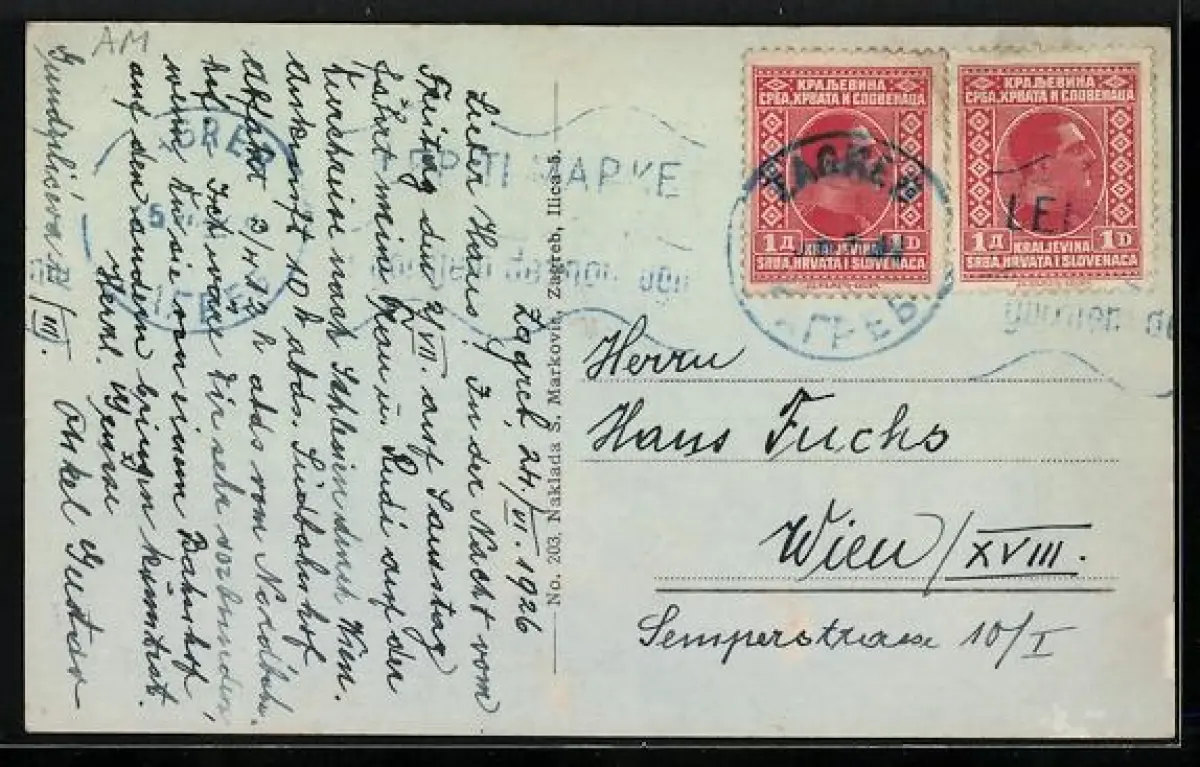 AM
Zagreb, 24./VI. 1926
Lieber Hans! In der Nacht vom
Freitag den 2/VII. auf Samstag
fährt meine Frau u. Rudi auf der
nach Schlesien durch Wien.
Ankunft 10 h abds. Südbahnhof
Abfahrt 3/4 12 h abds vom Nordbahn-
hof. Ich wäre Dir sehr verbunden,
wenn Du sie von einem Bahnhof
auf den andern bringen könntest.
Herzl. Grüsse
Onkel Gustav
Gundulićeva /III.
No. 203. Naklada Š. Marković, Zagreb, Ilica
КРАЉЕВИНА
СРБА, ХРВАТА И СЛОВЕНАЦА
1 Д
1 D
KRALJEVINA
SRBA, HRVATA I SLOVENACA
КРАЉЕВИНА
СРБА, ХРВАТА И СЛОВЕНАЦА
1 Д
1 D
KRALJEVINA
SRBA, HRVATA I SLOVENACA
ZAGREB
ЗАГРЕБ
MARKE
Herrn
Hans Fuchs
Wien/XVIII.
Semperstrasse 10/I